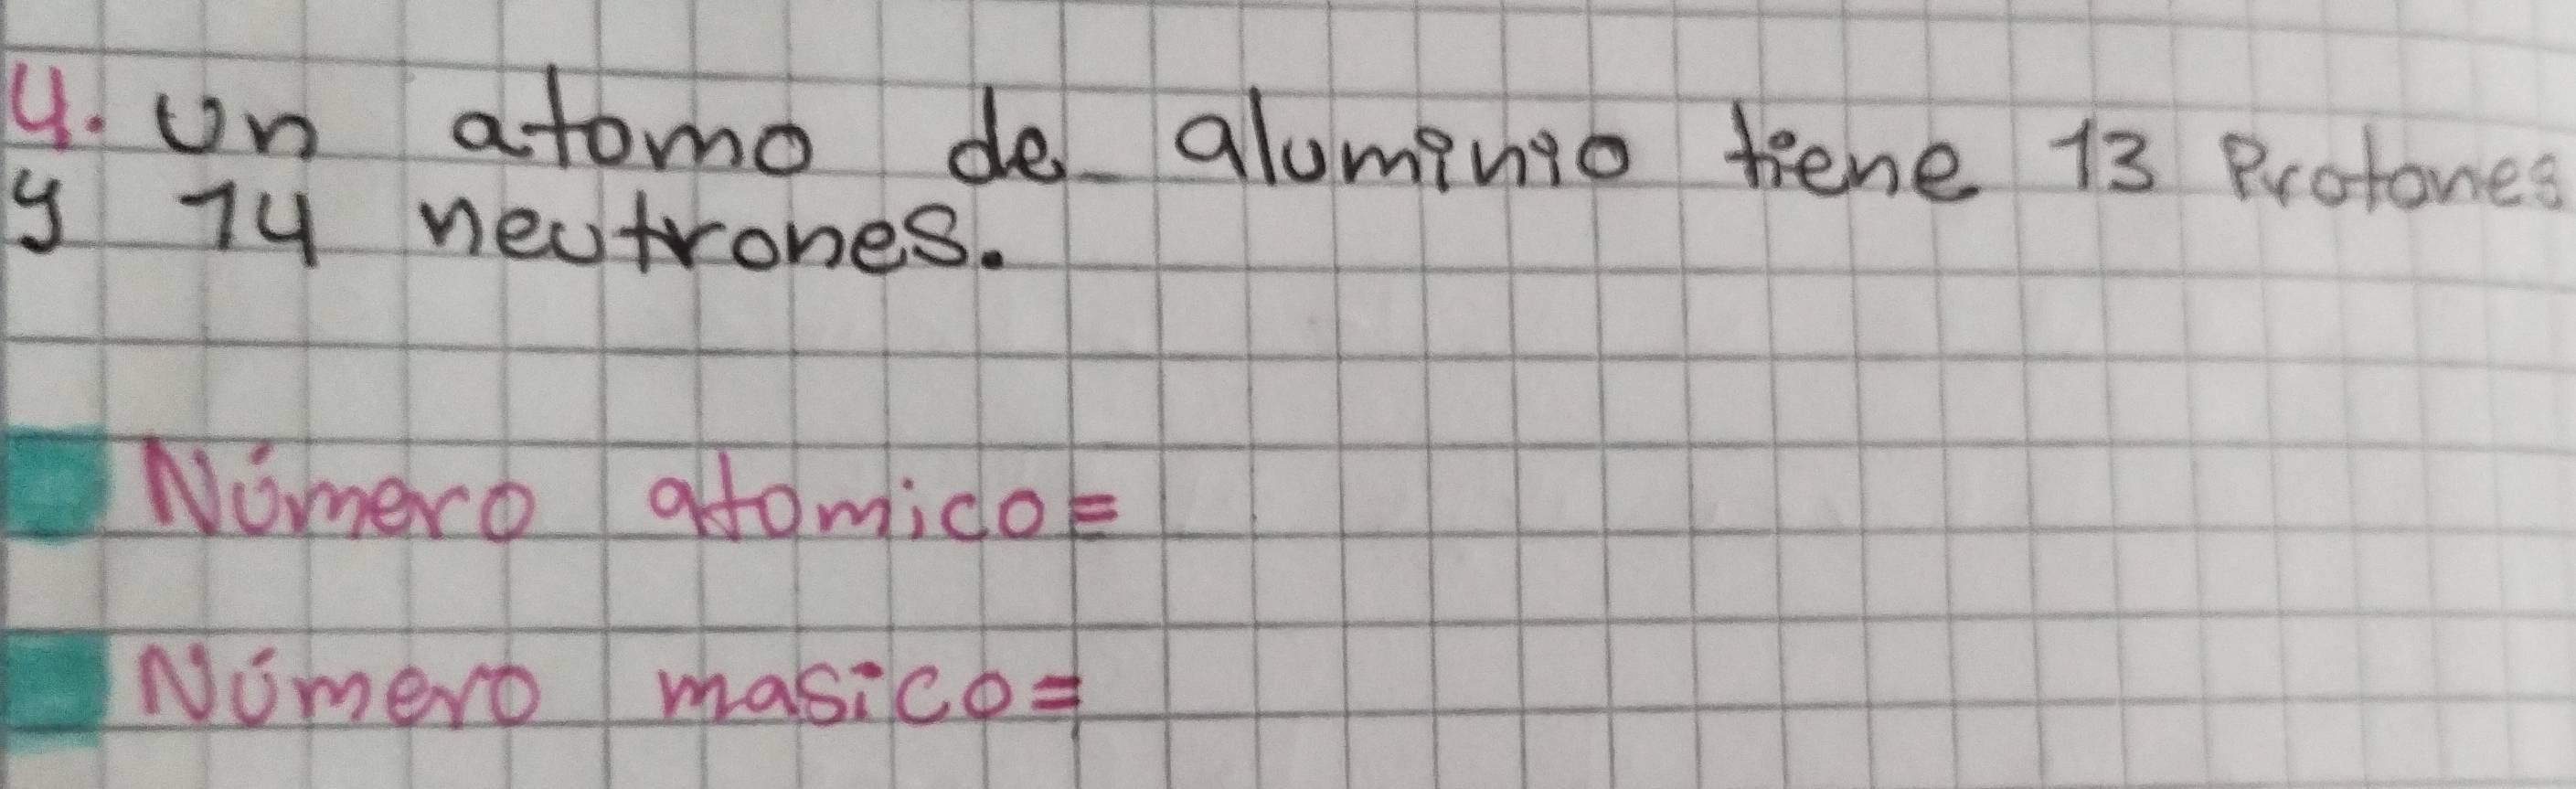 4. Un atomo de aluminio tiene 13 Protones
y 14 neutrones.
Número atomico=
Número masico=